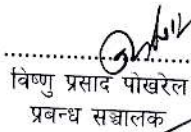 विष्णु प्रसाद पोखरेल
प्रबन्ध सञ्चालक